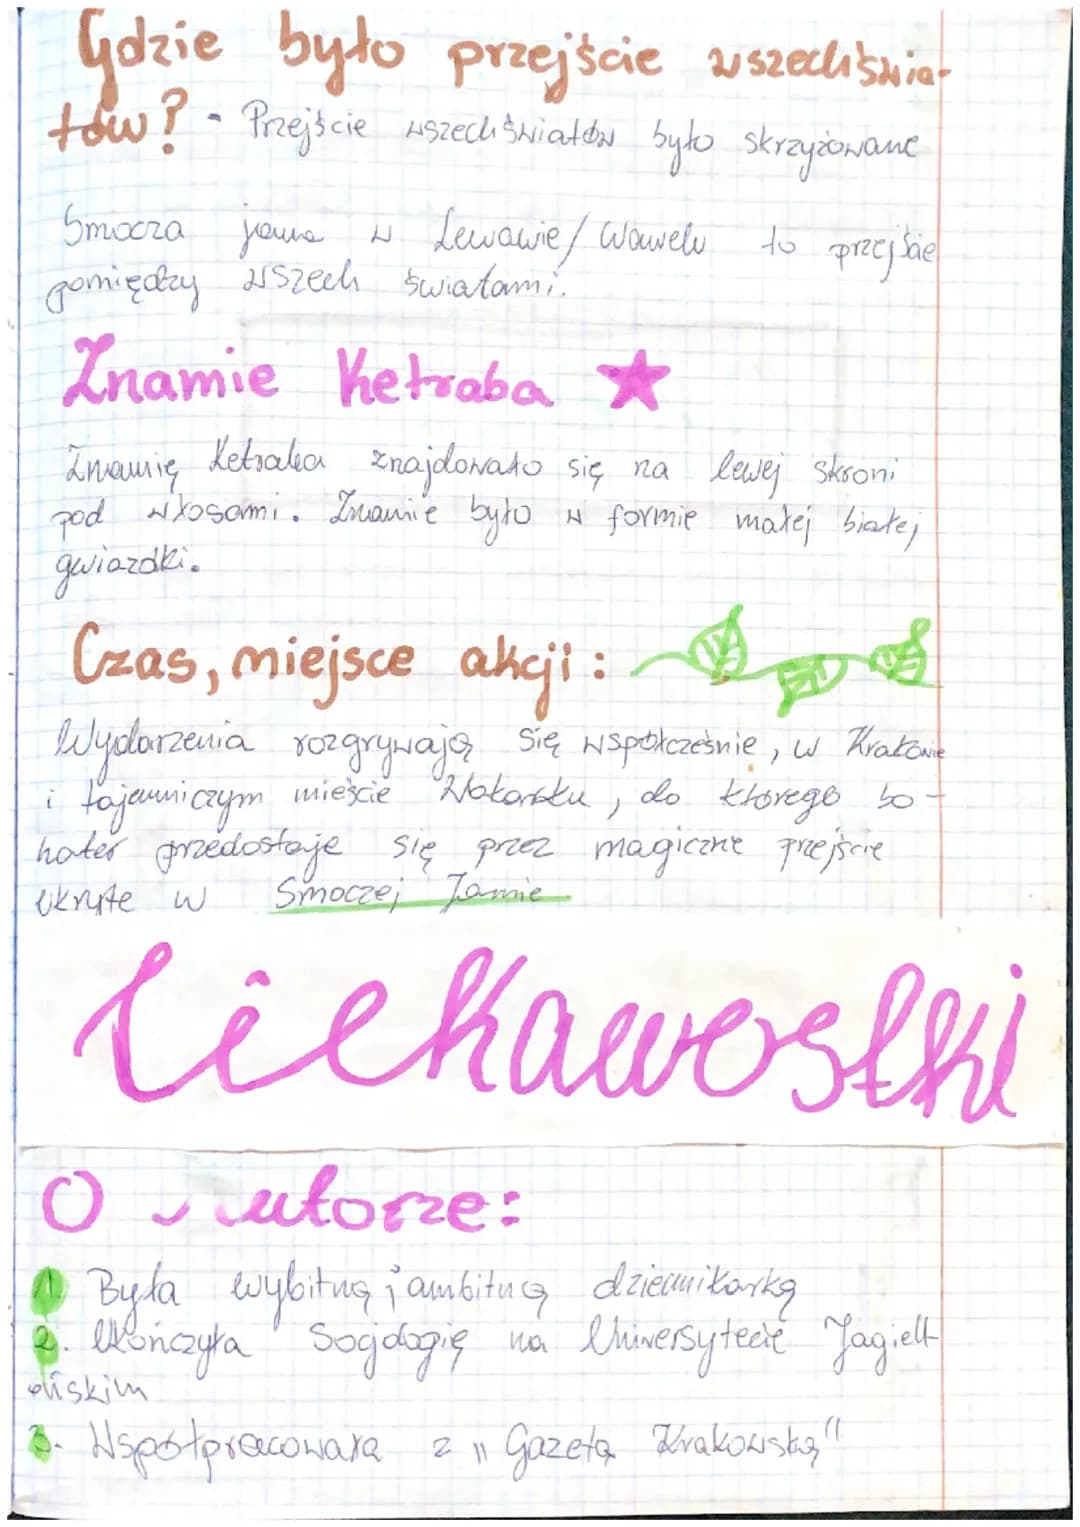 Gdzie było przejście wszechświa-
tów? - Przejście wszechświatów było skrzyżowane
Smocza jama w Lewawie/Wawelu to przejście
pomiędzy wszech światami.
Znamie Ketraba ★
Znamię Ketraba znajdowało się na lewej skroni
pod włosami. Znamie było w formie małej białej
gwiazdki.
Czas, miejsce akcji:
Wydarzenia rozgrywają się współcześnie, w Krakowie
i tajemniczym mieście Wokarsku, do którego bo-
hater przedostaje się przez magiczne przejście
ukryte w Smoczej Jamie
Ciekawostki
O autorze:
1. Była wybitną i ambitną dziennikarką
2. Ukończyła Socjologię na Uniwersytecie Jagiell-
ońskim
3. Współpracowała z "Gazetą Krakowską"